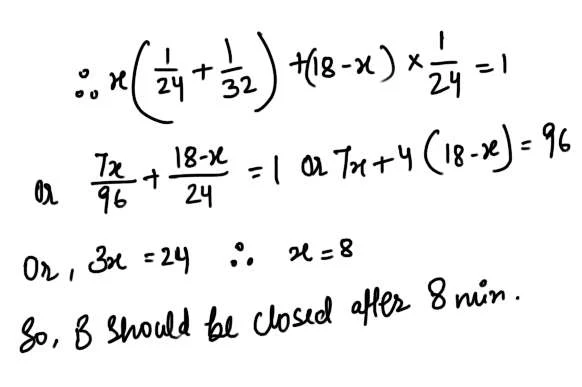 ∴ x(1/24 + 1/32) + (18-x) × 1/24 = 1
or 7x/96 + 18-x/24 = 1 or 7x+4(18-x) = 96
Or, 3x = 24 ∴ x = 8
So, B should be closed after 8 min.